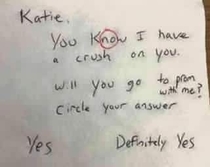 Katie,
You Know I have
a crush on you.
will you go to prom
with me?
Circle your answer
Yes Definitely Yes